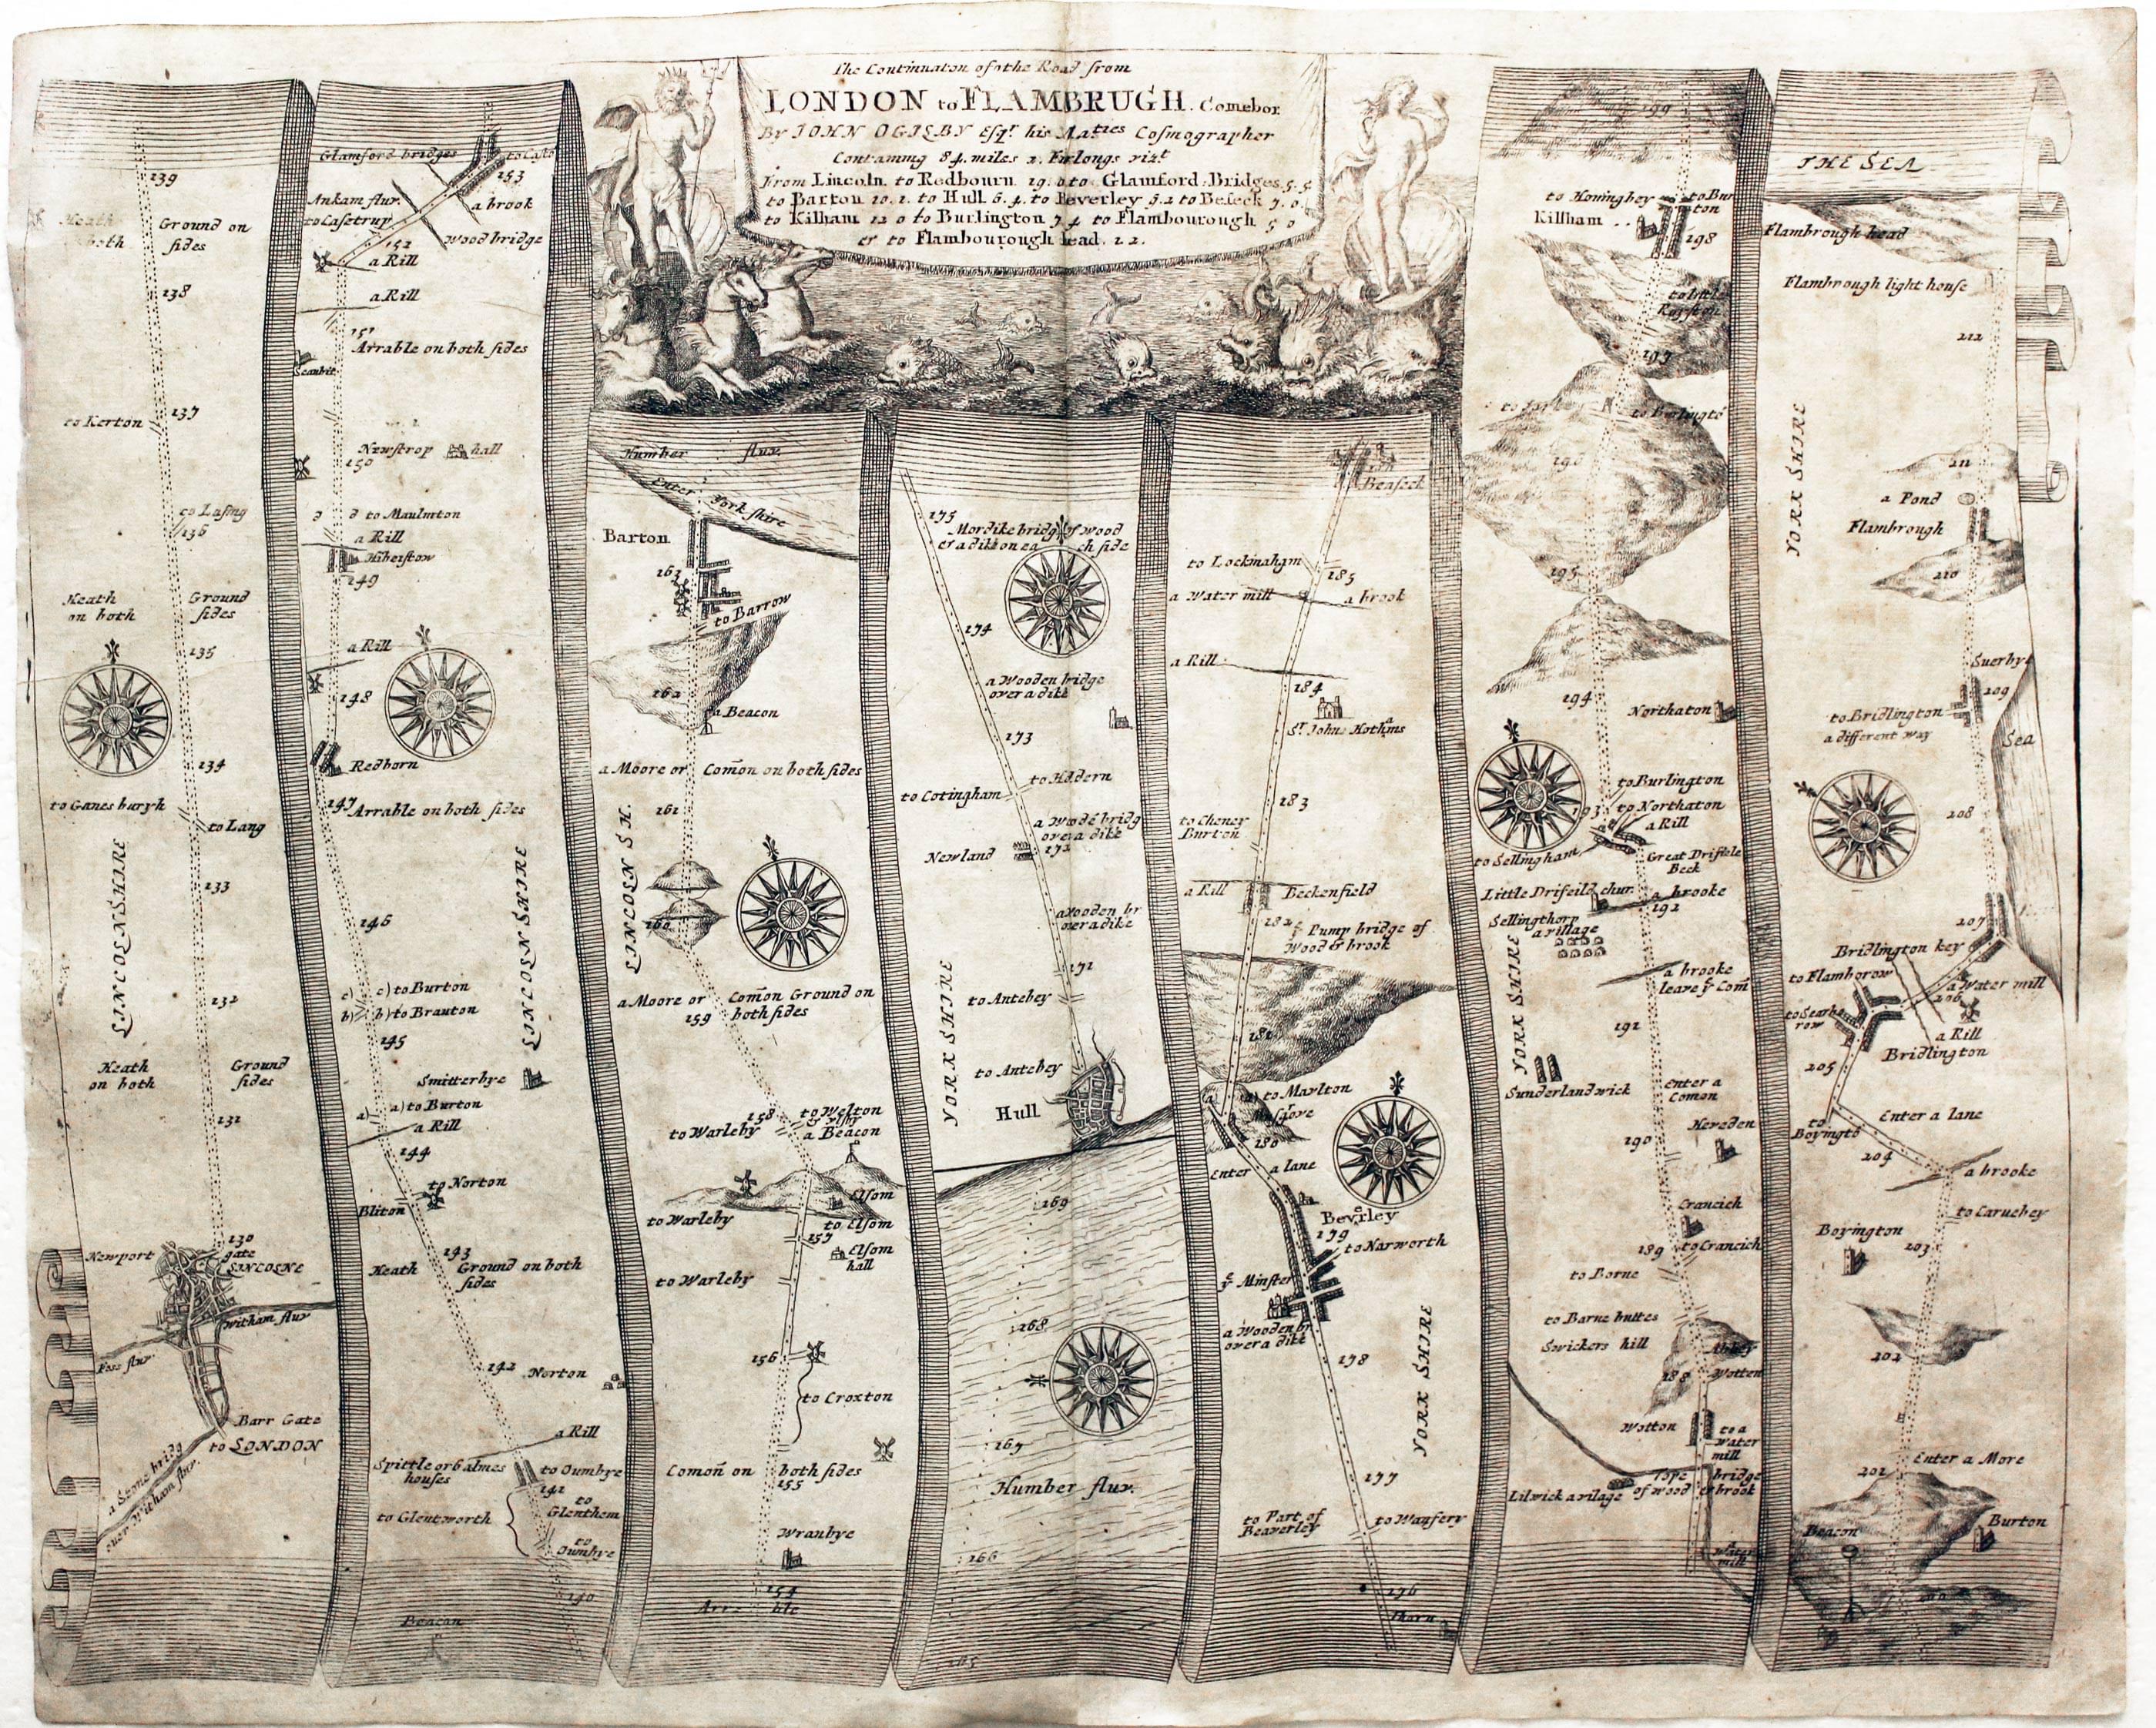 The Continuaton of the Road from
LONDON to FLAMBRUGH. Comebor
By IOHN OGILBY Esqr. his Maties Cosmographer
Containing 84. miles 2. Furlongs vizt
From Lincoln. to Redbourn. 19. 0 to Glamford-Bridges. 5. 5
to Barton 10. 2. to Hull 6. 4. to Beverley 9. 2 to Beseck 7. 0
to Kilham 12 0 to Burlington 7 4 to Flambourough 5 0
& to Flambourough head. 2 2.
139
Heath
both
Ground on
sides
138
137
to Kerton
to Lasing
136
Heath
on both
Ground
sides
135
134
to Ganes burgh
to Lang
LINCOLNSHIRE
133
132
Heath
on both
Ground
sides
131
130
Newport
gate
LINCOLNE
Witham flur
Foss flur
Barr Gate
to LONDON
a Stone bridg
over Witham flur.
Glamford bridges
to Cast
153
Ankam flur.
to Castrup
a brook
152
Wood bridge
a Rill
a Rill
151
Arrable on both sides
Scaubit
Newstrop hall
150
d
d to Maulmton
a Rill
Hiberstow
149
a Rill
148
Redborn
147
Arrable on both sides
LINCOLNSHIRE
146
c)
c) to Burton
b)
b) to Brauton
145
Smitterbye
a)
a) to Burton
a Rill
144
to Norton
Bliton
143
Heath
Ground on both
sides
142
Norton
a Rill
Spittle or 6 almes
houses
to Oumbye
141
to Glentworth
to
Glenthem
to
Oumbye
140
Beacon
Humber flux.
Enter York shire
Barton
163
to Barrow
162
a Beacon
a Moore or Comon on both sides
161
LINCOLN SH.
160
a Moore or Comon Ground on
159 both sides
158
to Welton
to Warleby
a Beacon
Elsom
to Warleby
to Elsom
157
Elsom
hall
to Warleby
156
to Croxton
Comon on both sides
155
Wranbye
154
175
Mordike bridg of wood
& a dike on ea ch side
174
a Wooden bridge
over a dike
173
to Cotingham
to Hildern
a Woodē bridg
over a dike
172
Newland
a Wooden br
over a dike
171
to Antebey
YORK SHIRE
to Antebey
Hull
169
168
167
Humber flur.
166
165
Beaseck
to Lockinaham
185
a Water mill
a brook
a Rill
184
Sr. Johns Hothms
183
to Cheney
Burton
a Rill
Beckenfield
182
Pump bridge of
Wood & brook
181
to Marlton
180
Enter a lane
Beverley
179
to Narworth
ye Minster
a Wooden br
over a dike
178
YORK SHIRE
177
to Part of
Beaverley
to Wansery
176
Thorn
199
to Honinghey
to Bur
ton
Killham
198
to little
197
to Burlingto
196
195
194
Northaton
to Burlington
193
to Northaton
a Rill
to Sellingham
Great Drifele
Beck
Little Drifeild chur.
a brooke
192
Sellingthorp
a village
YORK SHIRE
a brooke
leave ye Com
191
Sunderlandwick
Enter a
Comon
Hereden
190
Crancich
189
to Crancich
to Borne
to Barne buttes
Swickers hill
Abbey
188
Wotten
Wotton
to a
water
mill
bridge
Lilwick a vilage of wood & brook
a
Water
mill
THE SEA
Flambrough head
Flambrough light house
212
YORK SHIRE
211
a Pond
Flambrough
210
Suerbye
209
to Bridlington
a different way
Sea
208
207
Bridlington key
to Flamborow
a Water mill
206
to Scarb
row
a Rill
Bridlington
205
Enter a lane
to
Boyngto
204
a brooke
to Caruebey
Boyington
203
202
Enter a More
201
Beacon
Burton
200